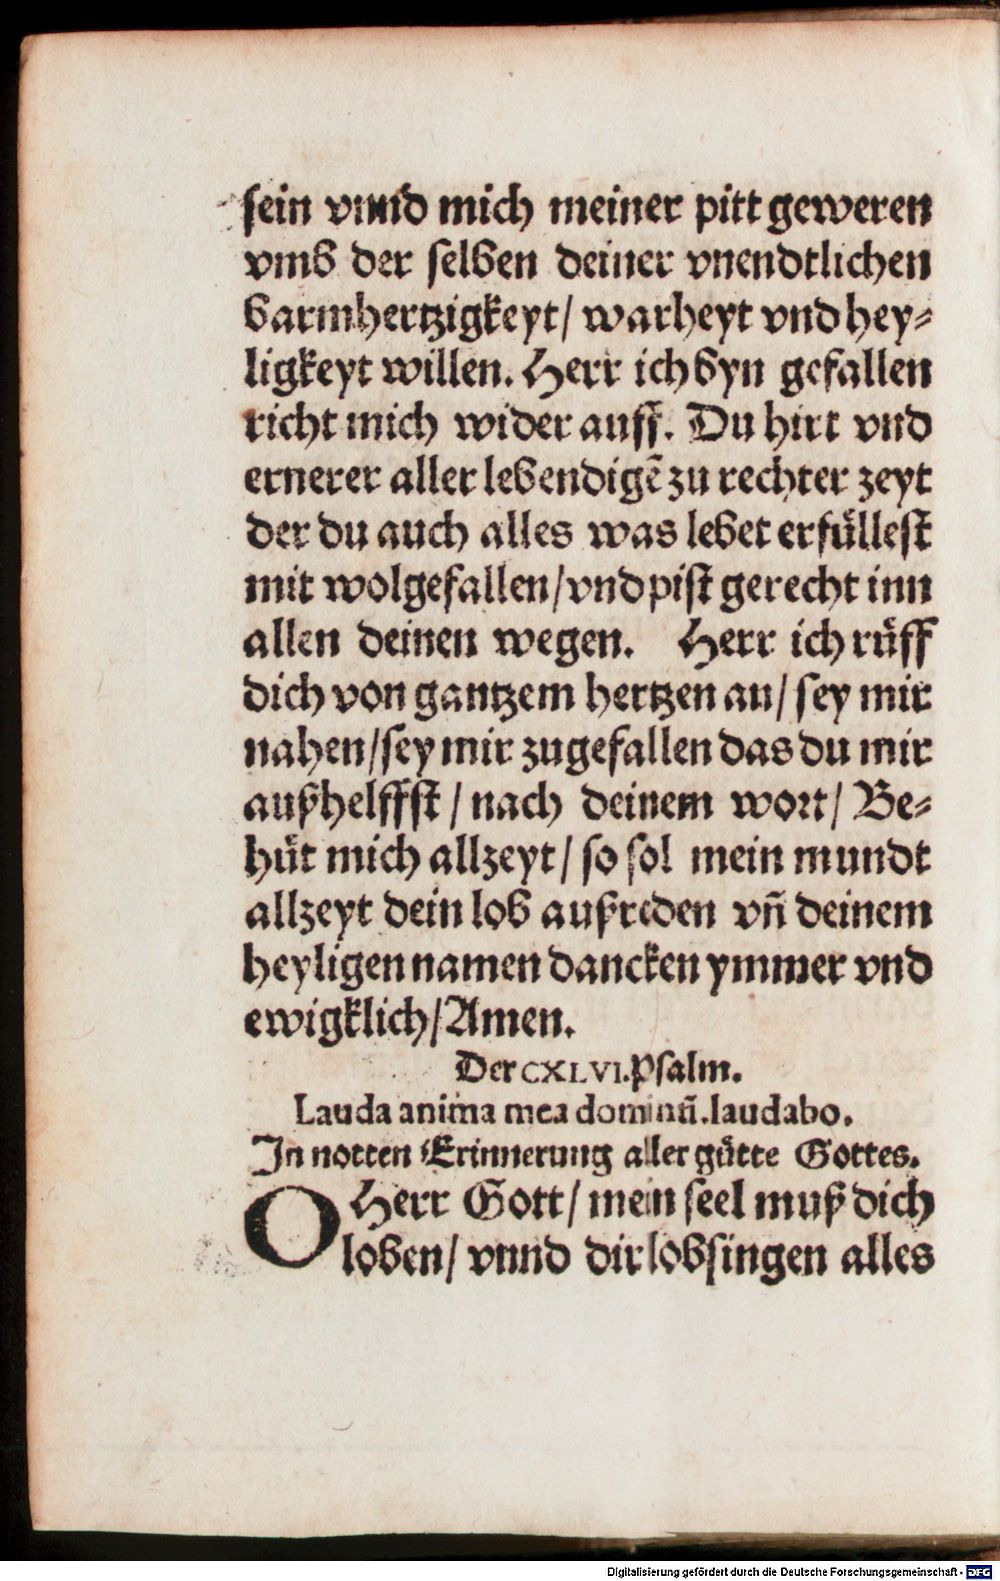 sein vnnd mich meiner pitt geweren
vmb der selben deiner vnendtlichen
barmhertzigkeyt/ warheyt vnd hey⸗
ligkeyt willen. Herr ich byn gefallen
richt mich wider auff. Du hirt vnd
ernerer aller lebendigē zu rechter zeyt
der du auch alles was lebet erfüllest
mit wolgefallen/vnd pist gerecht inn
allen deinen wegen. Herr ich rüff
dich von gantzem hertzen an/ sey mir
nahen/sey mir zugefallen das du mir
außhelffst / nach deinem wort/ Be⸗
hüt mich allzeyt/ so sol mein mundt
allzeyt dein lob außreden vñ deinem
heyligen namen dancken ymmer vnd
ewigklich/Amen.
Der CXLVI. Psalm.
Lauda anima mea dominū. laudabo.
In notten Erinnerung aller gütte Gottes.
O Herr Gott/ mein seel muß dich
loben/ vnnd dir lobsingen alles
Digitalisierung gefördert durch die Deutsche Forschungsgemeinschaft - DFG